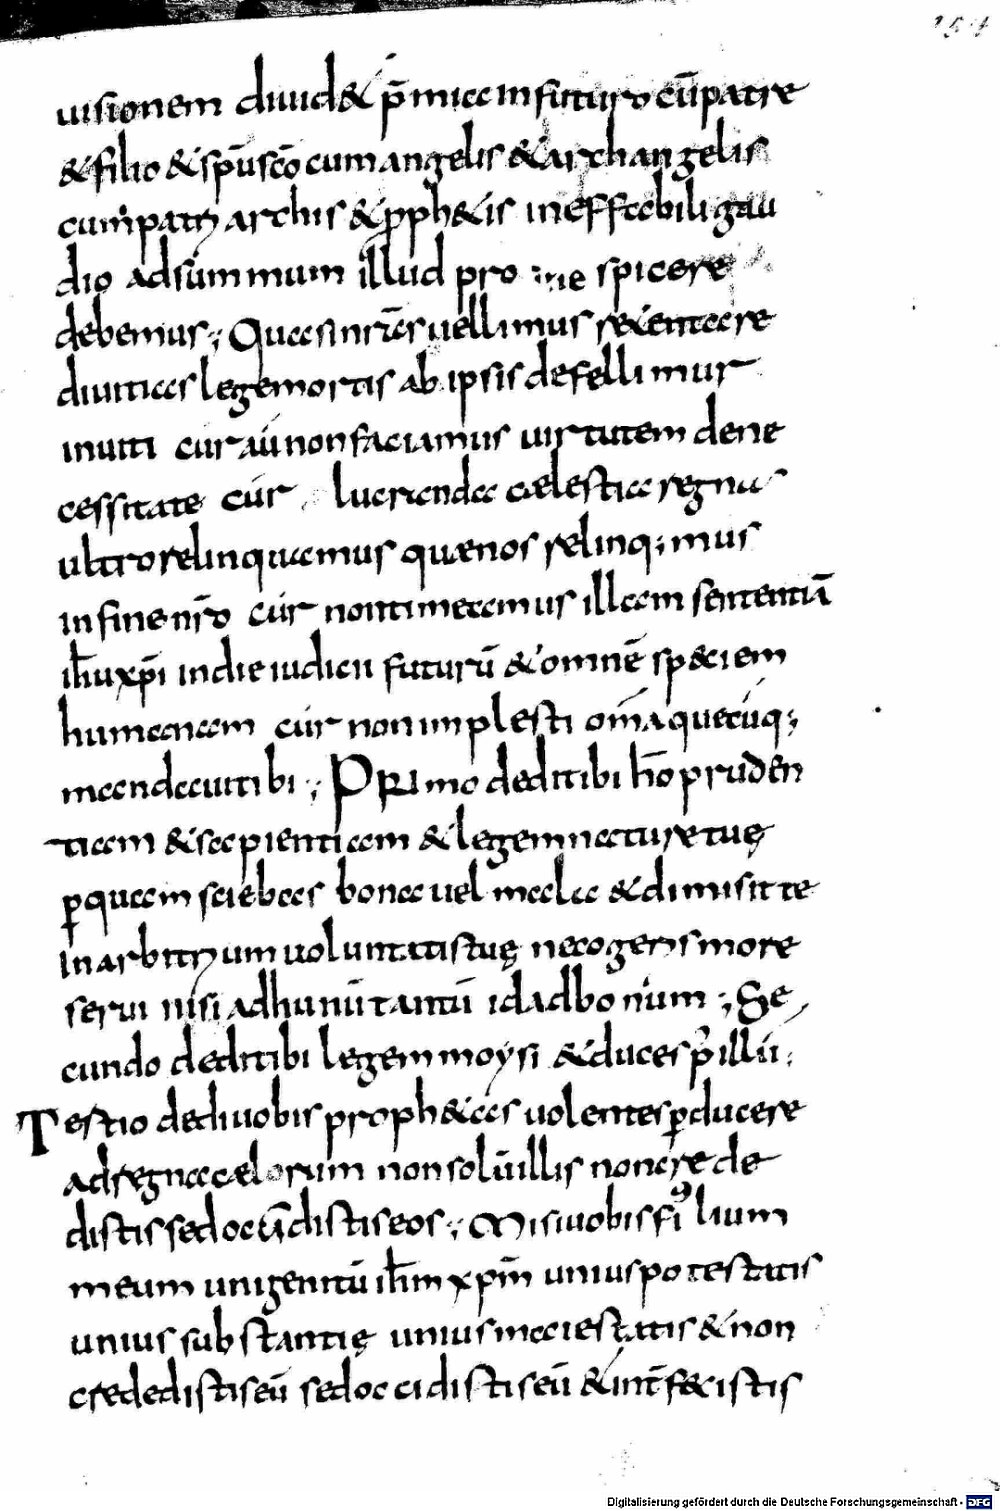 154
uisionem diuid& p̄mia in futuro cū patre
& filio & sp̄u sc̄o cum angelis & archangelis
cum patriarchis & pph&is ineffabili gau
dio ad summum illud pro spicere
debemus ; Quasi nr̄as uellimus retentare
diuitias lege mortis ab ipsis defellimur
inuiti cur aū non faciamus uirtutem de ne
cessitate cur lucranda cælestia regna
ultro relinquamus quæ nos relinq;mus
in fine nr̄o cur non timeamus illam sententiā
ih̄u xp̄i in die iudicii futurū & omnē speciem
humanam cur non implesti om̄a quecūq;
mandaui tibi ; PRimo dedi tibi h̄o pruden
tiam & sapientiam & legem nature tuę
ꝑ quam sciebas bona uel mala & dimisit te
In arbitrium uoluntatis tuę ne cogens more
serui nisi ad hunū tantū id ad bonum ; Se
cundo dedi tibi legem moysi & duces p illū ;
Tertio dedi uobis proph&as uolentes ꝑducere
ad regna cælorum non solū illis non cre de
distis sed occidistis eos ; Misi uobis filium
meum unigenitū ih̄m xp̄m unius potestatis
unius substantię unius maiestatis & non
crededistis eū sed occidistis eū & int̄fecistis
Digitalisierung gefördert durch die Deutsche Forschungsgemeinschaft - DFG